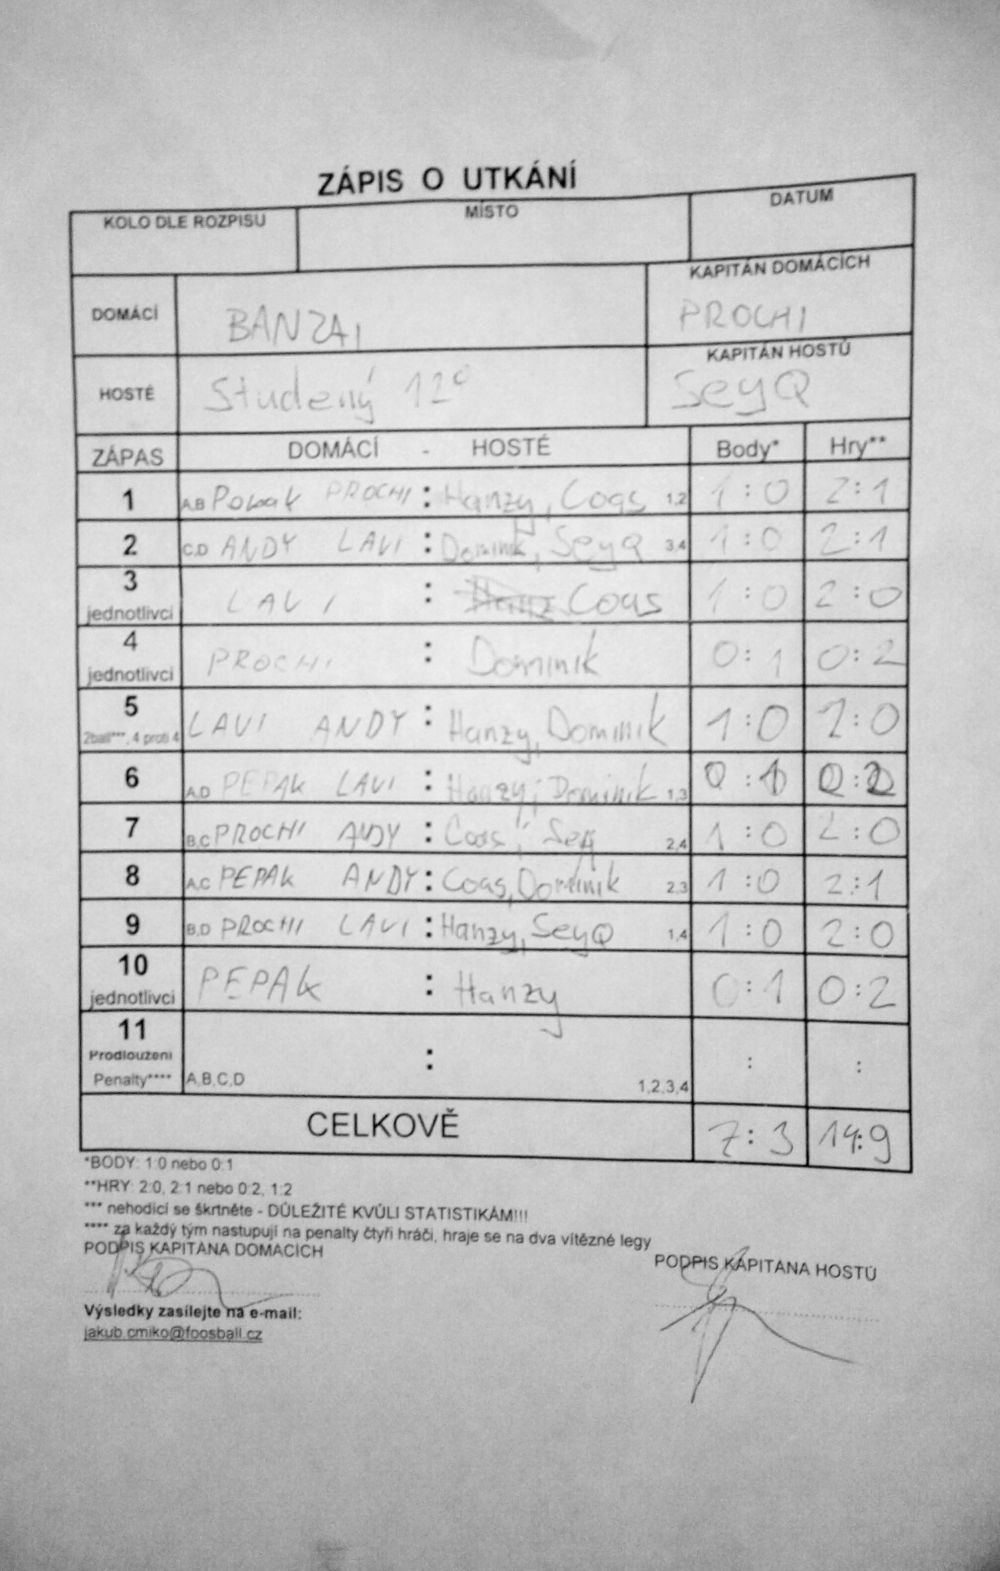 ZÁPIS O UTKÁNÍ
KOLO DLE ROZPISU MÍSTO DATUM
DOMÁCÍ BANZAI KAPITÁN DOMÁCÍCH PROCHI
HOSTÉ Studený 12° KAPITÁN HOSTŮ SeyQ
ZÁPAS DOMÁCÍ - HOSTÉ Body* Hry**
1 A,B PROCHI : Hanzy, Coas 1,2 1:0 2:1
2 C,D ANDY LAVI : Dominik, SeyQ 3,4 1:0 2:1
3 jednotlivci LAVI : Coas 1:0 2:0
4 jednotlivci PROCHI : Dominik 0:1 0:2
5 2ball***, 4 proti 4 LAVI ANDY : Hanzy, Dominik 1:0 2:0
6 A,D PEPAK LAVI : Hanzy, Dominik 1,3 0:1 0:2
7 B,C PROCHI ANDY : Coas, Sey 2,4 1:0 2:0
8 A,C PEPAK ANDY : Coas, Dominik 2,3 1:0 2:1
9 B,D PROCHI LAVI : Hanzy, SeyQ 1,4 1:0 2:0
10 jednotlivci PEPAK : Hanzy 0:1 0:2
11 Prodloužení Penalty**** A,B,C,D : 1,2,3,4 : :
CELKOVĚ 7:3 14:9
*BODY: 1:0 nebo 0:1
**HRY: 2:0, 2:1 nebo 0:2, 1:2
*** nehodící se škrtněte - DŮLEŽITÉ KVŮLI STATISTIKÁM!!!
**** za každý tým nastupují na penalty čtyři hráči, hraje se na dva vítězné legy
PODPIS KAPITÁNA DOMÁCÍCH
PODPIS KAPITÁNA HOSTŮ
Výsledky zasílejte na e-mail:
jakub.cmiko@foosball.cz